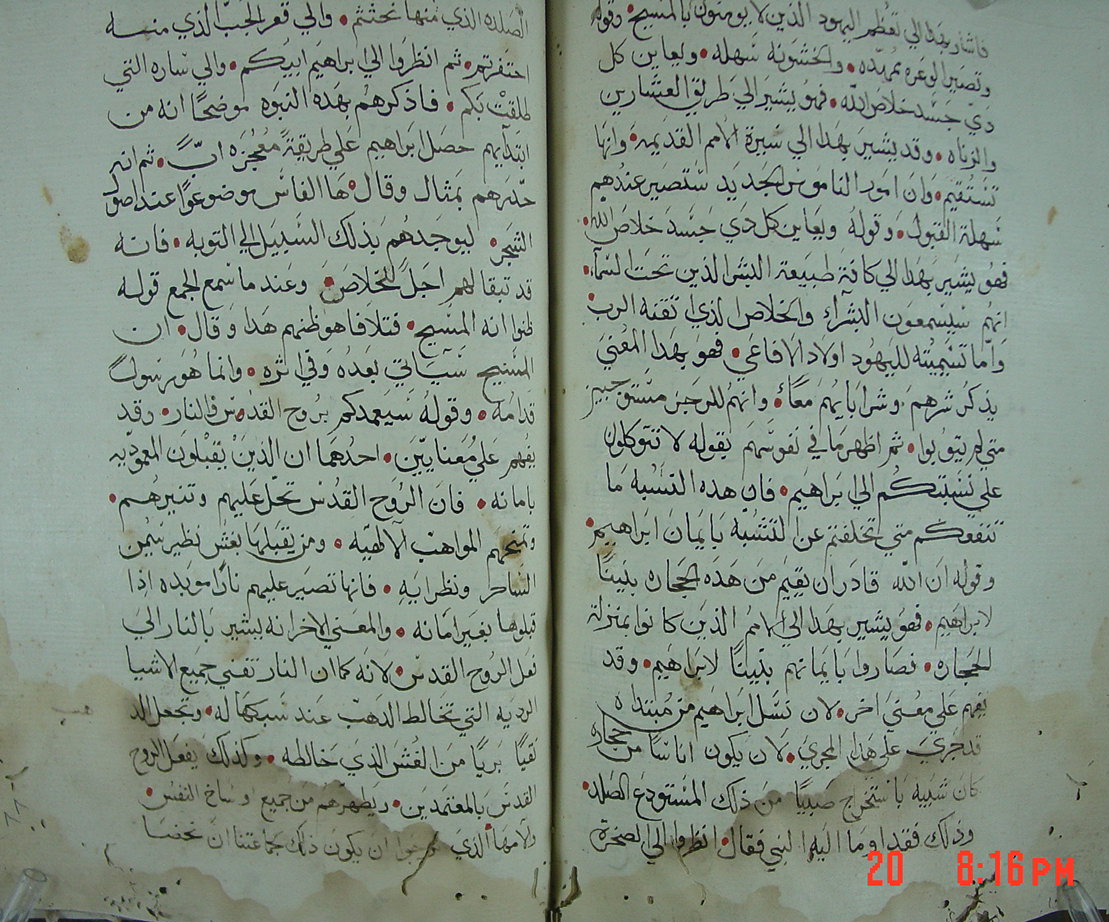 فاشار بهذا الي تعظم اليهود الذين لا يومنون بالمسيح • وقوله
وتصير الوعره ممهده • والخشونه سهله • ويعاين كل
دي جسد خلاص الله • فهو يشير الي طريق العشارين
والزناه • وقد يشير بهذا الي سيرة الامم القديمه • وانها
تستقيم • وان امور الناموس الجديد ستصير عندهم
سهلة القبول • وقوله ويعاين كل دي جسد خلاص الله •
فهو يشير بهذا الي كافة طبيعة البشر الذين تحت السما •
انهم سيسمعون البشرا والخلاص الذي اتقنه الرب •
واما تسميته لليهود اولاد الافاعي • فهو بهذا المعني
يذكر شرهم وشر ابايهم معًا • وانهم للرجز مستوجبين
متي لم يتوبوا • ثم اظهر ما في نفوسهم بقوله لا تتوكلون
علي نسبتكم الي ابراهيم • فان هذه النسبه ما
تنفعكم متي تخلفتم عن التشبه بايمان ابراهيم •
وقوله ان الله قادر ان يقيم من هذه الحجاره بنينًا
لابراهيم • فهو يشير بهذا الي الامم الذين كانوا بمنزلة
الحجاره • فصاروا بايمانهم بنينًا لابراهيم • وقد
يفهم علي معني اخر • لان نسل ابراهيم من مبتداه
قد جري علي هذا المجري • لان يكون اناسًا من حجاره
كان شبيه باستخراج صبيًا من ذلك المستودع الصلد •
وذلك فقد اوما اليه النبي فقال • انظروا الي الصخرة
الصلده الذي منها نحتتم • والي قعر الجب الذي منه
احتفرتم • ثم انظروا الي ابراهيم ابيكم • والي ساره التي
طلقت بكم • فاذكرهم بهذه النبوه موضحًا انه من
ابتدايهم حصل ابراهيم علي طريقة معجزه ابّ • ثم انه
حذرهم بمثال وقال • ها الفاس موضوعًا عند اصول
الشجر • ليوجدهم بذلك السبيل الي التوبه • فانه
قد تبقا لهم اجل للخلاص • وعند ما سمع الجمع قوله
ظنوا انه المسيح • فتلافا هو ظنهم هذا وقال • ان
المسيح سياتي بعده وفي اثره • وانما هو رسول
قدامه • وقوله سيعمدكم بروح القدس والنار • وقد
يفهم علي معنايين • احدهما ان الذين يقبلون المعموديه
بامانه • فان الروح القدس تحل عليهم وتنيرهم •
وتمنحهم المواهب الالهيه • ومن يقبلها بغش نظير سيمن
الساحر ونظرايه • فانها تصير عليهم نارًا موبده اذا
قبلوها بغير امانه • والمعني الاخر انه يشير بالنار الي
فعل الروح القدس • لانه كما ان النار تفني جميع الاشيا
الرديه التي تخالط الدهب عند سبكها له • وتجعل الد
نقيًا بريًا من الغش الذي خالطه • وكذلك يفعل الروح
القدس بالمعتمدين • ويطهرهم من جميع اوساخ النفس •
ولامها الذي نرجوا ان يكون ذلك جماعتنا ان تحننا
هب
20 8:16 PM